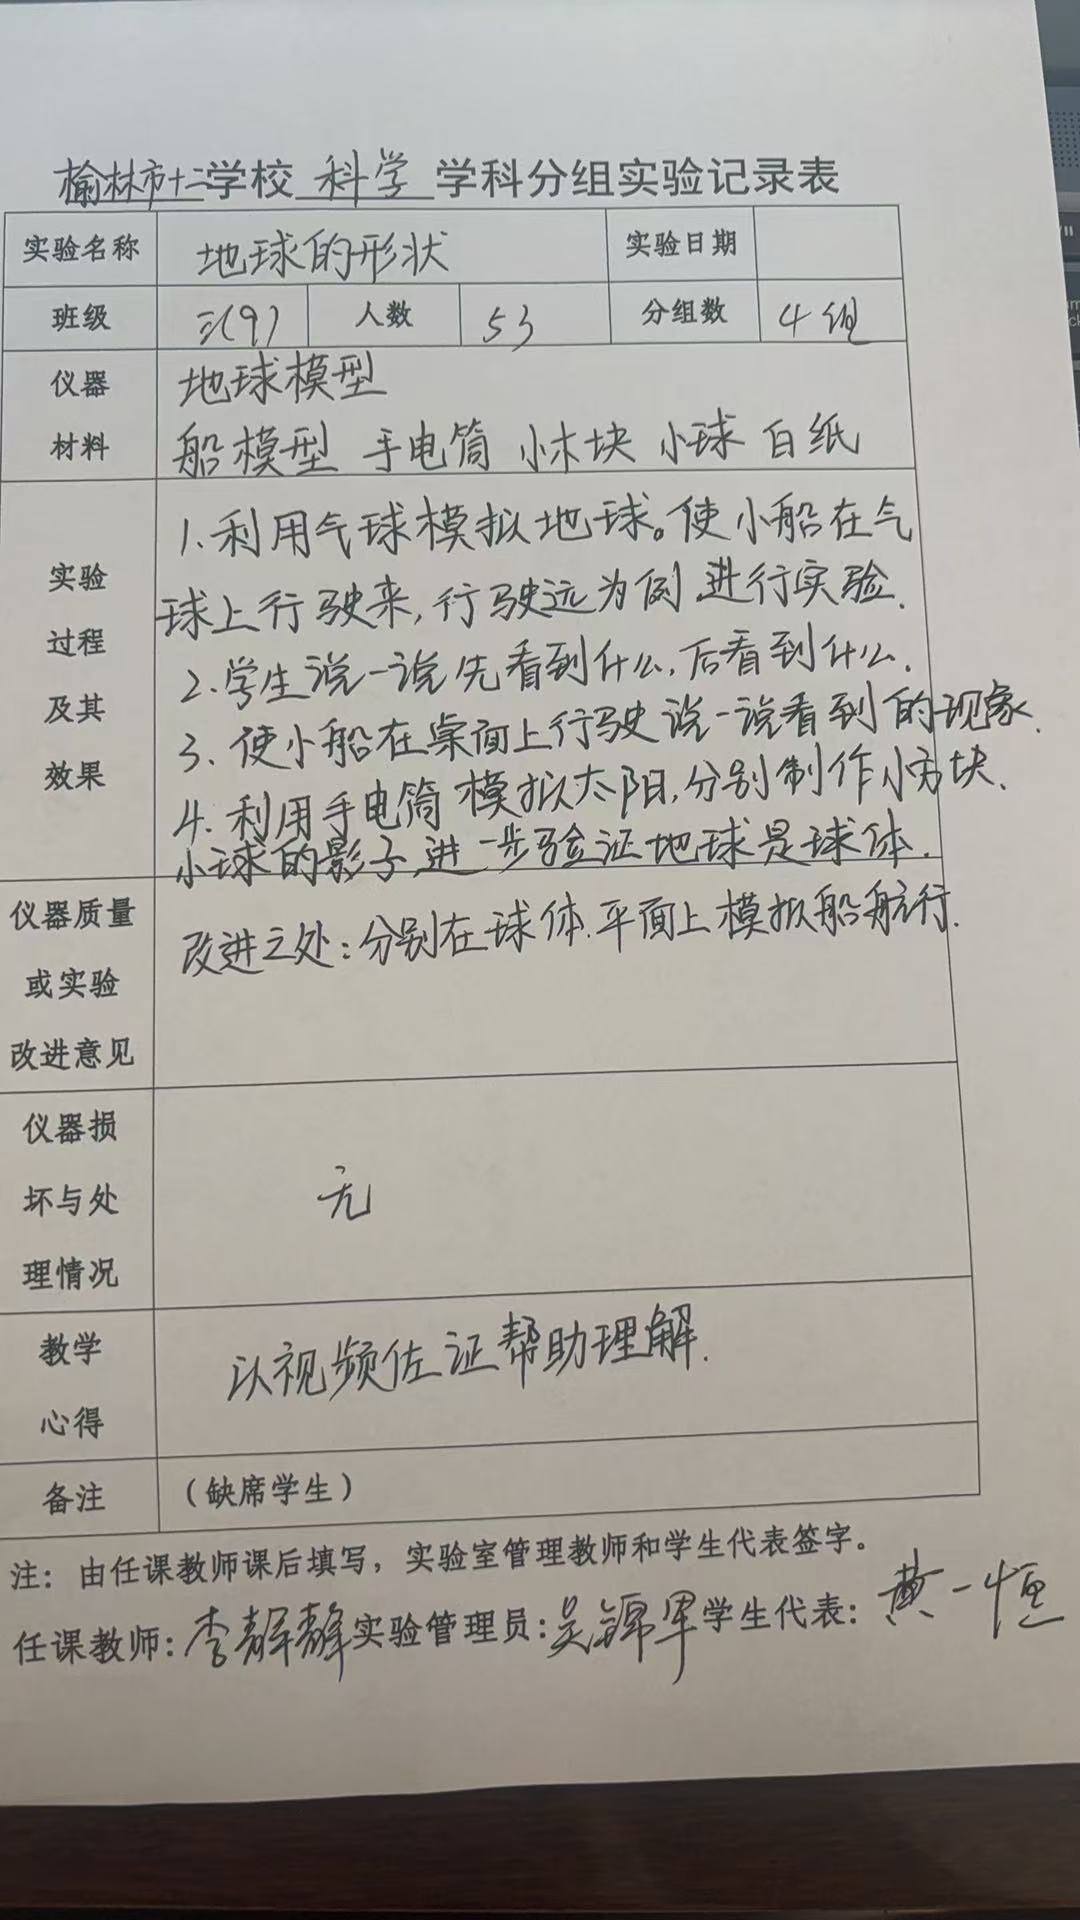 榆林市十二学校 科学 学科分组实验记录表
实验名称 地球的形状 实验日期
班级 三(9) 人数 53 分组数 4组
仪器材料 地球模型
船模型 手电筒 小木块 小球 白纸
实验过程及其效果 1.利用气球模拟地球。使小船在气
球上行驶来,行驶远为例.进行实验.
2.学生说一说先看到什么,后看到什么.
3.使小船在桌面上行驶说一说看到的现象.
4.利用手电筒模拟太阳,分别制作小方块.
小球的影子进一步验证地球是球体.
仪器质量或实验改进意见 改进之处:分别在球体.平面上模拟船航行.
仪器损坏与处理情况 无
教学心得 以视频佐证帮助理解.
备注 (缺席学生)
注:由任课教师课后填写,实验室管理教师和学生代表签字。
任课教师:李 实验管理员:吴锦军 学生代表:黄一恒